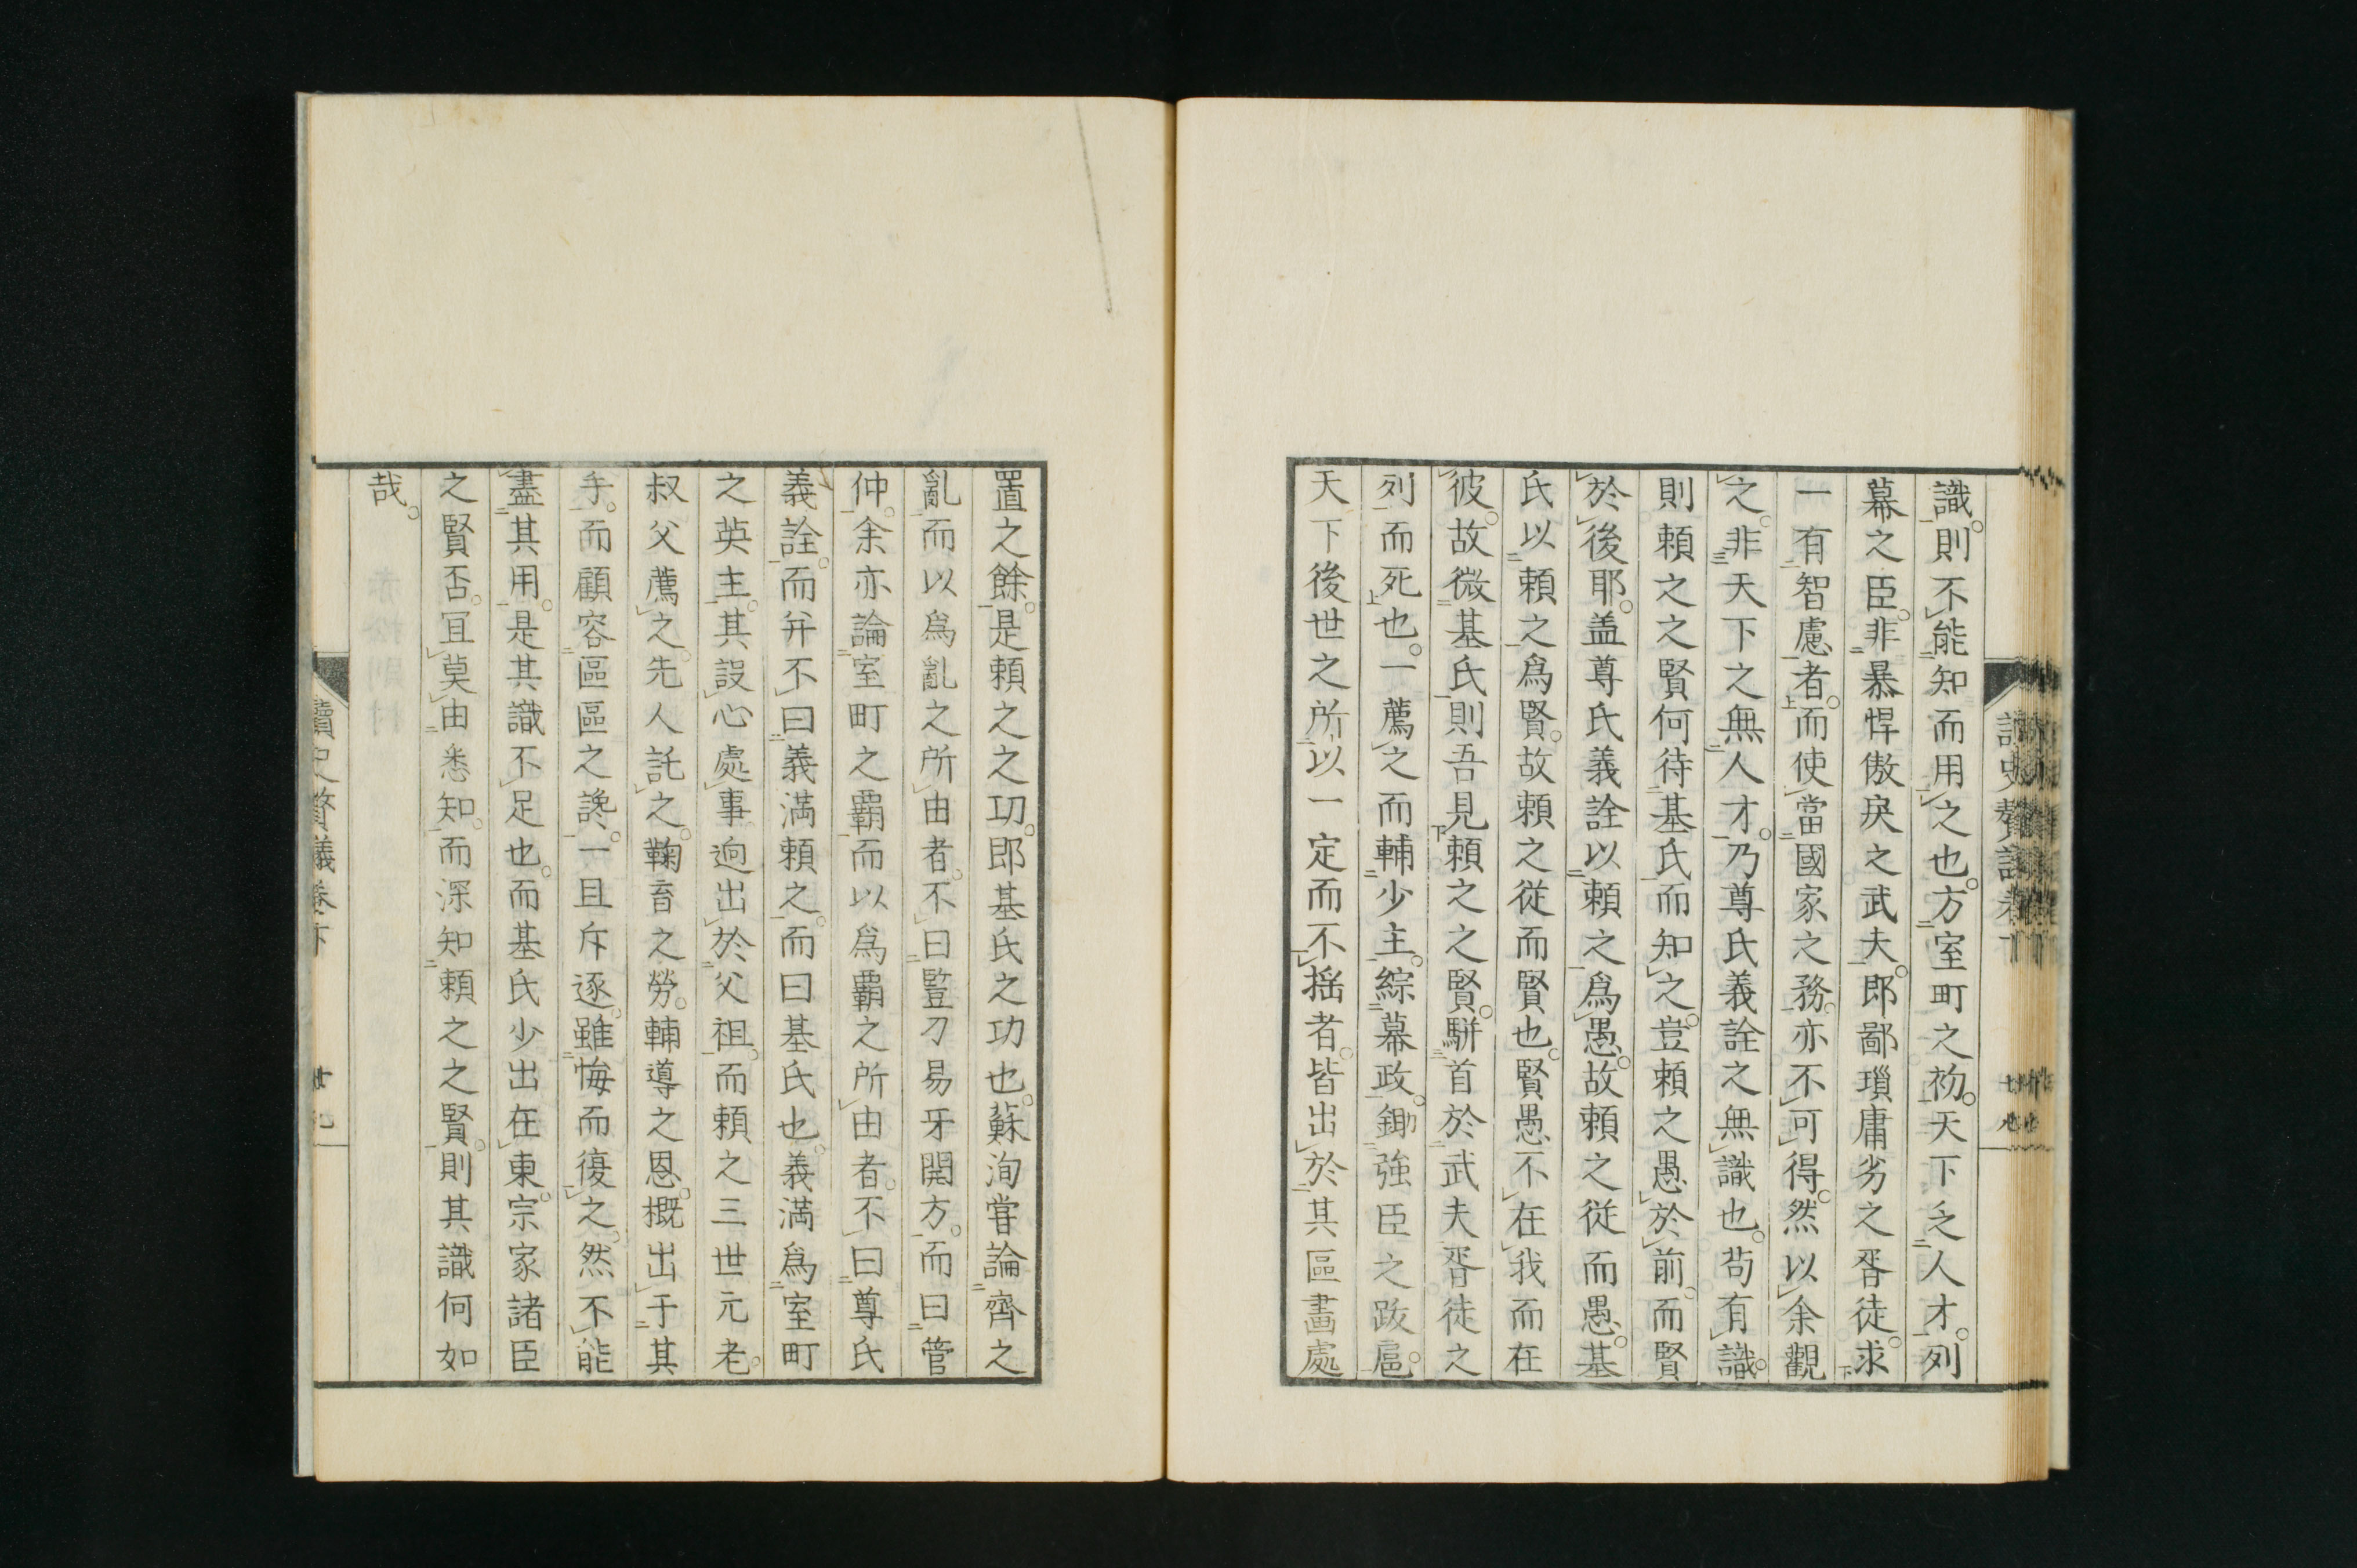 識。則不能知而用之也。方室町之初。天下乏人才。列
幕之臣。非暴悍傲戾之武夫。即鄙瑣庸劣之胥徒。求
一有智慮者。而使當國家之務。亦不可得。然以余觀
之。非天下之無人才。乃尊氏義詮之無識也。苟有識。
則頼之之賢何待基氏而知之。豈頼之愚於前。而賢
於後耶。盖尊氏義詮以頼之為愚。故頼之従而愚。基
氏以頼之為賢。故頼之従而賢也。賢愚不在我而在
彼。故微基氏則吾見頼之之賢。駢首於武夫胥徒之
列而死也。一薦之而輔少主。綜幕政。鋤強臣之跋扈。
天下後世之所以一定而不揺者。皆出於其區畫處
置之餘。是頼之之功。即基氏之功也。蘇洵嘗論齊之
亂而以為亂之所由者。不曰豎刁易牙開方。而曰管
仲。余亦論室町之覇而以為覇之所由者。不曰尊氏
義詮。而并不曰義満頼之。而曰基氏也。義満為室町
之英主。其設心處事逈出於父祖。而頼之三世元老。
叔父薦之。先人託之。鞠育之勞。輔導之恩。概出于其
手。而顧容區區之讒。一旦斥逐。雖悔而復之。然不能
盡其用。是其識不足也。而基氏少出在東。宗家諸臣
之賢否。冝莫由悉知。而深知頼之之賢。則其識何如
哉。
讀史贅議卷下